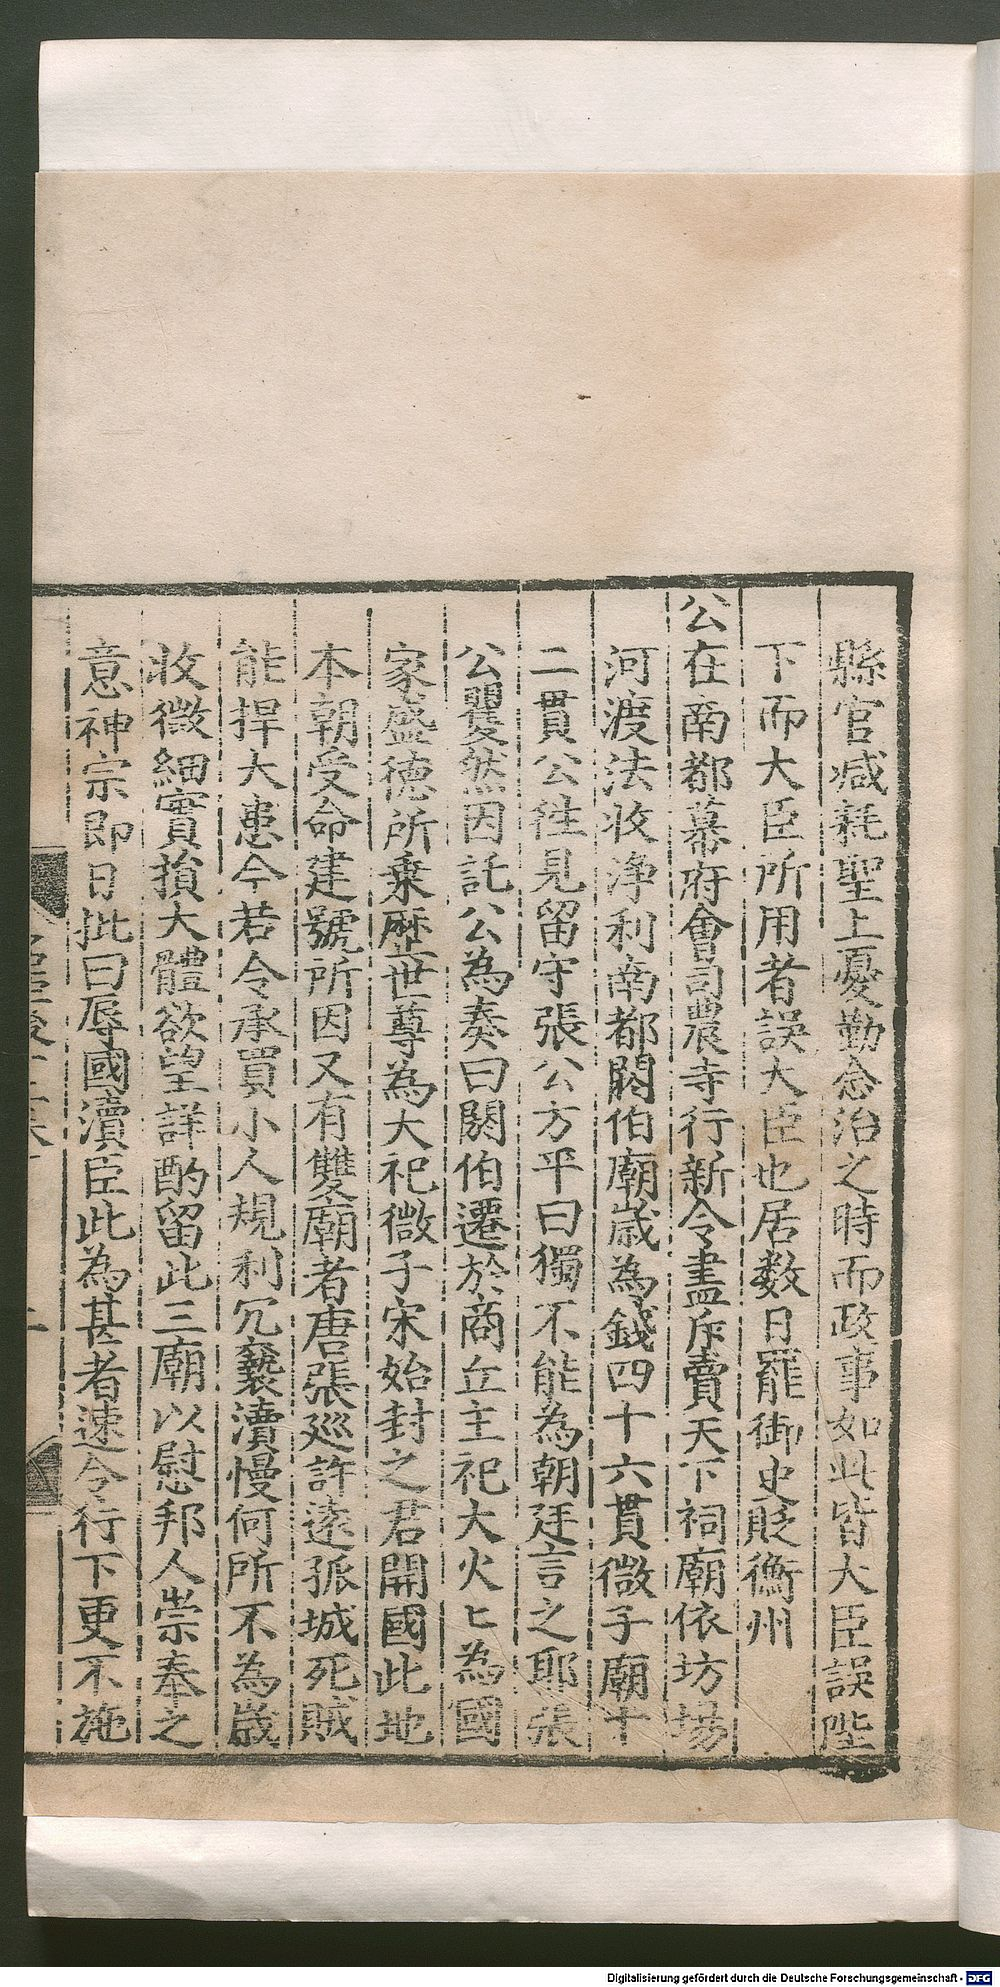 縣官减耗聖上憂勤念治之時而政事如此皆大臣誤陛
下而大臣所用者誤大臣也居數日罷御史貶衡州
公在南都幕府會司農寺行新令盡斥賣天下祠廟依坊場
河渡法收淨利南都閼伯廟歲為錢四十六貫微子廟十
二貫公徃見留守張公方平曰獨不能為朝廷言之耶張
公矍然因託公為奏曰閼伯遷於商丘主祀大火匕為國
家盛德所乗歷世尊為大祀微子宋始封之君開國此地
本朝受命建號所因又有雙廟者唐張廵許遠孤城死賊
能捍大患今若令承買小人規利冗褻瀆慢何所不為歲
收微細實損大體欲望詳酌留此三廟以慰邦人崇奉之
意神宗即日批曰辱國瀆臣此為甚者速令行下更不施
Digitalisierung gefördert durch die Deutsche Forschungsgemeinschaft - DFG